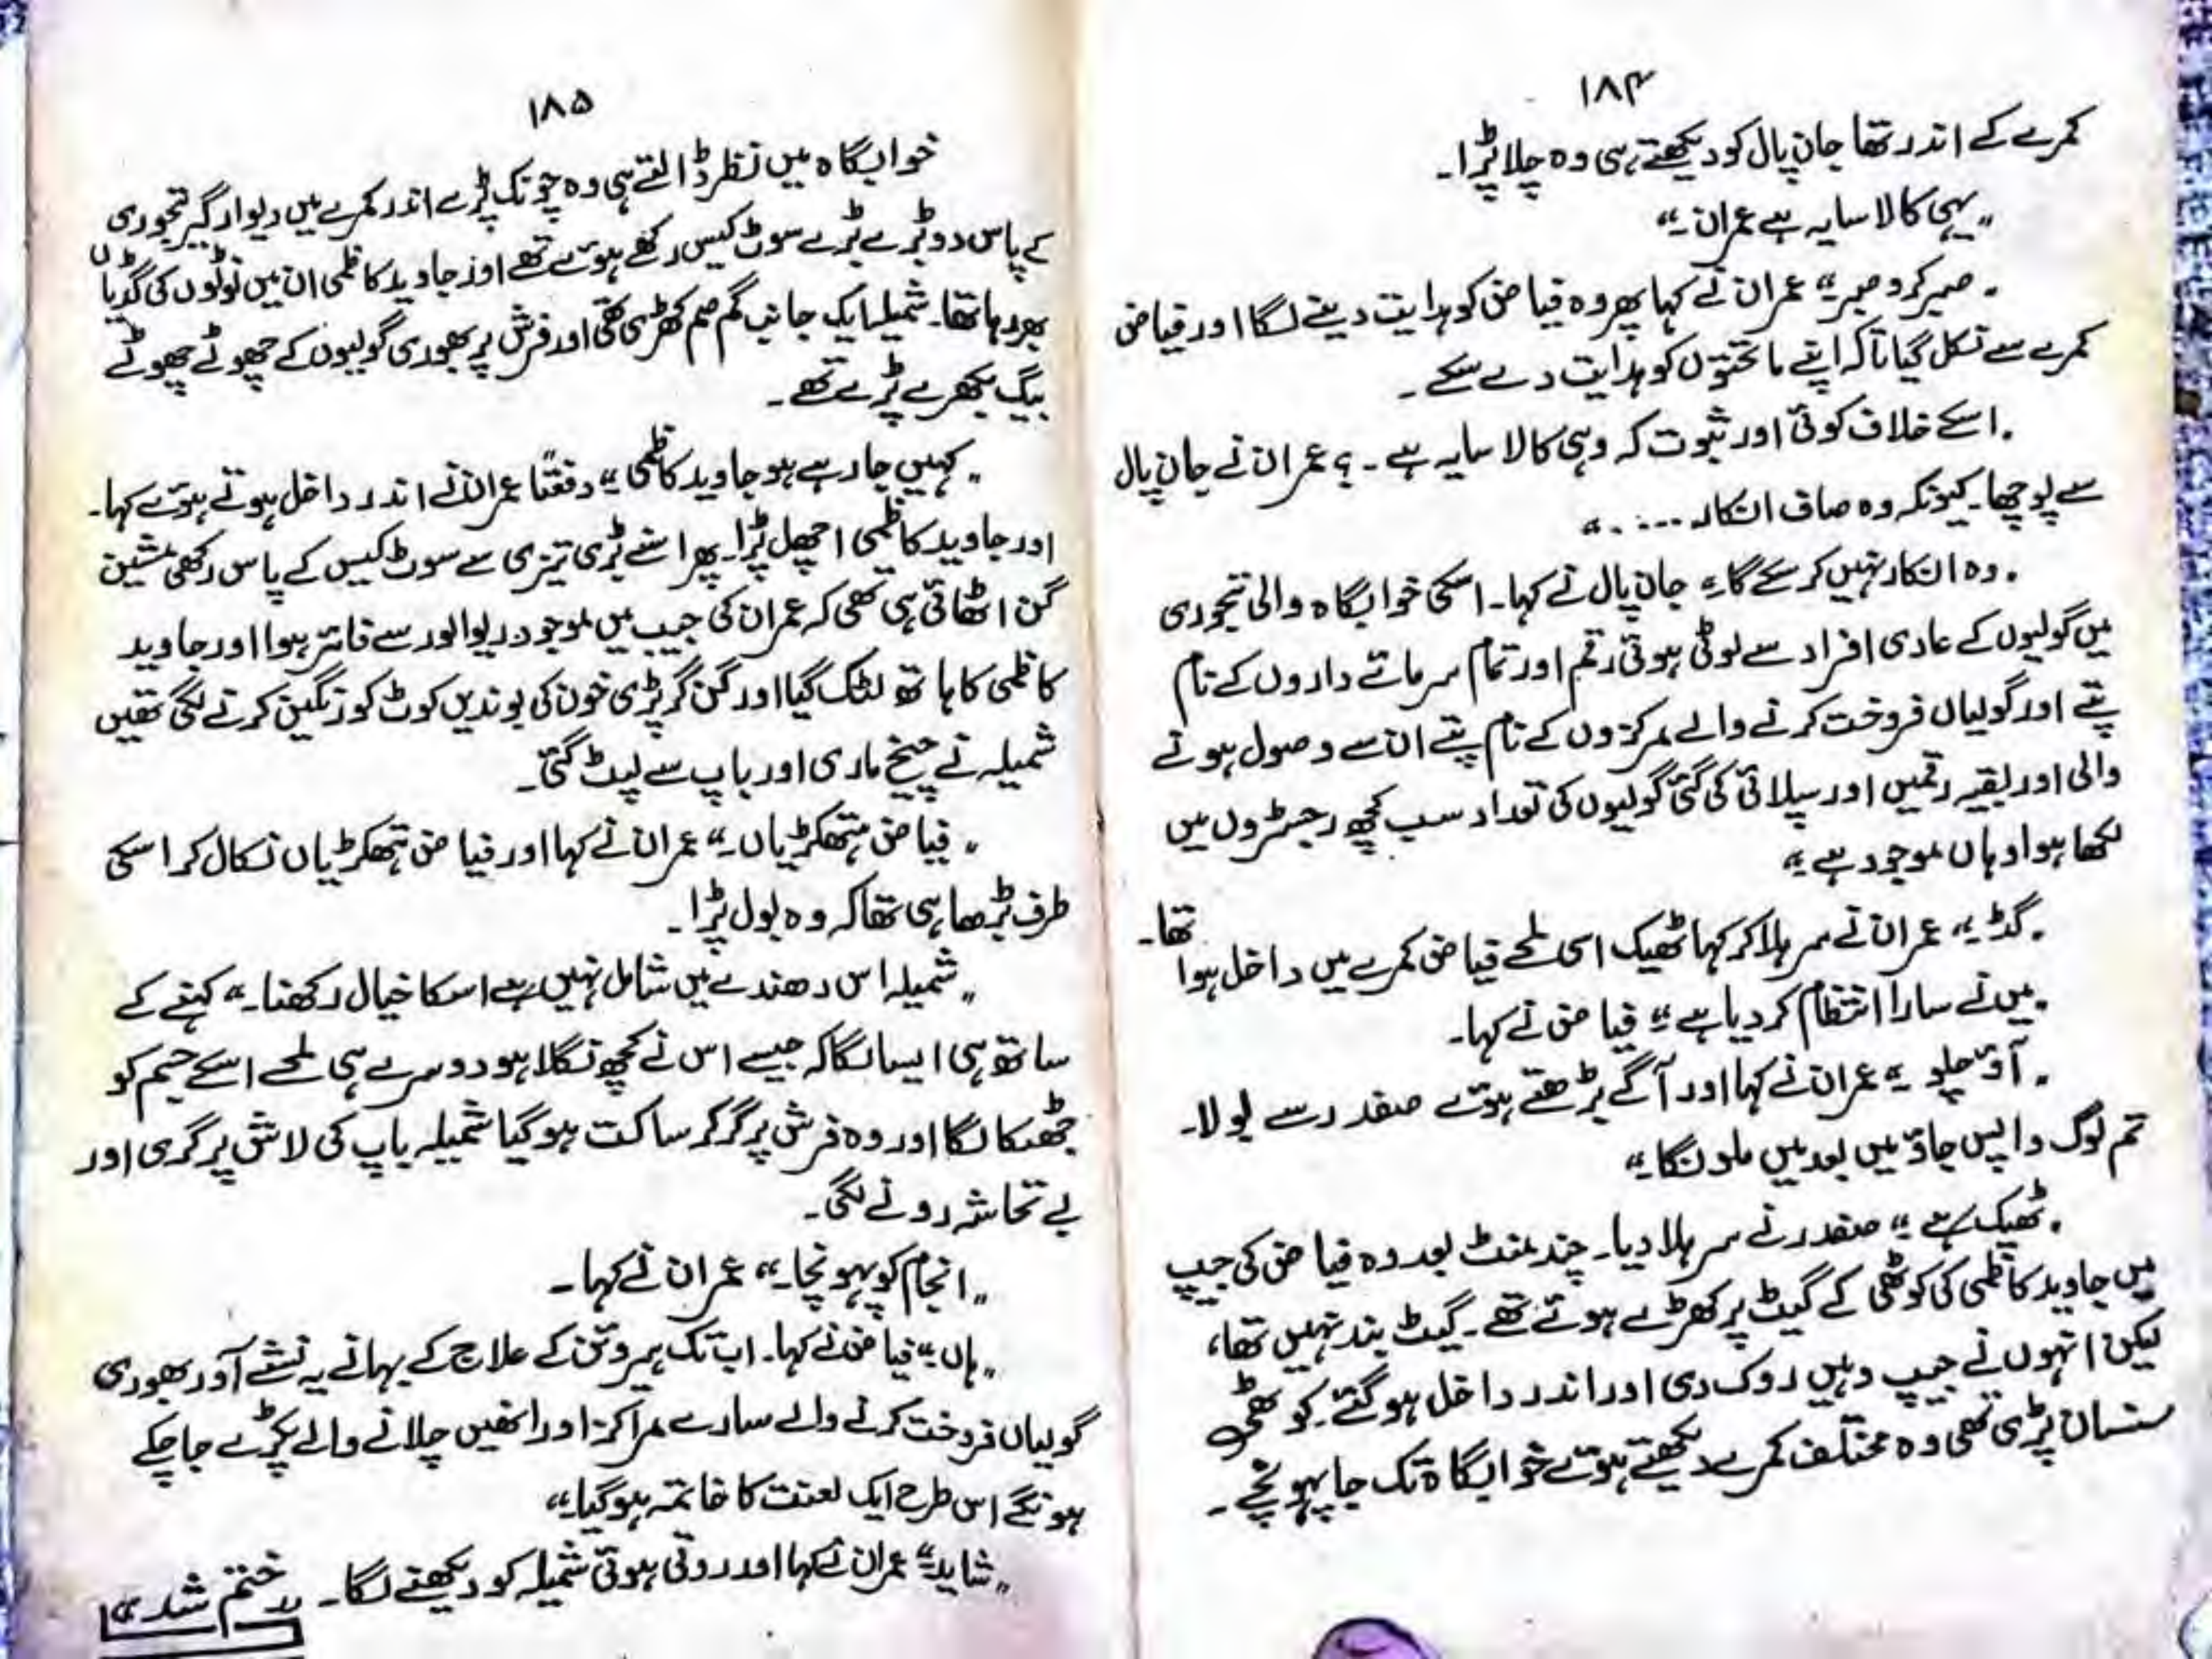 ۱۸۴
کمرے کے اندر تھا جان پال کو دیکھتے ہی وہ چلا پڑا۔
"یہی کالا سایہ ہے عمران۔"
"صبر کرو صبر۔" عمران نے کہا پھر وہ فیاض کو ہدایت دینے لگا اور فیاض
کمرے سے نکل گیا تاکہ اپنے ماتحتوں کو ہدایت دے سکے۔
"اسکے خلاف کوئی اور ثبوت کہ وہی کالا سایہ ہے۔؟ عمران نے جان پال
سے پوچھا۔ کیونکہ وہ صاف انکار ....."
"وہ انکار نہیں کر سکے گا۔" جان پال نے کہا۔ اسکی خوابگاہ والی تجوری
میں گولیوں کے عادی افراد سے لوٹی ہوئی رقم اور تمام سرمائے داروں کے نام
پتے اور گولیاں فروخت کرنے والے مرکزوں کے نام پتے ان سے وصول ہونے
والی اور بقیہ رقمیں اور سپلائی کی گئی گولیوں کی تعداد سب کچھ رجسٹروں میں
لکھا ہوا وہاں موجود ہے۔"
"گڈ۔" عمران نے سر ہلا کر کہا ٹھیک اسی لمحے فیاض کمرے میں داخل ہوا تھا۔
"میں نے سارا انتظام کر دیا ہے۔" فیاض نے کہا۔
"آؤ چلو۔" عمران نے کہا اور آگے بڑھتے ہوئے صفدر سے بولا۔
تم لوگ واپس جاؤ میں بعد میں ملونگا۔"
"ٹھیک ہے۔" صفدر نے سر ہلا دیا۔ چند منٹ بعد وہ فیاض کی جیپ
میں جاوید کاظمی کی کوٹھی کے گیٹ پر کھڑے ہوئے تھے۔ گیٹ بند نہیں تھا،
لیکن انہوں نے جیپ وہیں روک دی اور اندر داخل ہو گئے۔ کوٹھی
سنسان پڑی تھی وہ مختلف کمرے دیکھتے ہوئے خوابگاہ تک جا پہونچے۔
۱۸۵
خوابگاہ میں نظر ڈالتے ہی وہ چونک پڑے اندر کمرے میں دیوار گیر تجوری
کے پاس دو بڑے بڑے سوٹ کیس رکھے ہوئے تھے اور جاوید کاظمی ان میں نوٹوں کی گڈیاں
بھر رہا تھا۔ شمیلہ ایک جانب گم صم کھڑی تھی اور فرش پر بھوری گولیوں کے چھوٹے چھوٹے
بیگ بکھرے پڑے تھے۔
"کہیں جا رہے ہو جاوید کاظمی۔" دفعتاً عمران نے اندر داخل ہوتے ہوئے کہا۔
اور جاوید کاظمی اچھل پڑا۔ پھر اسنے بڑی تیزی سے سوٹ کیس کے پاس رکھی مشین
گن اٹھائی ہی تھی کہ عمران کی جیب میں موجود ریوالور سے فائر ہوا اور جاوید
کاظمی کا ہاتھ لٹک گیا اور گن گر پڑی خون کی بوندیں کوٹ کو رنگین کرنے لگی تھیں
شمیلہ نے چیخ ماری اور باپ سے لپٹ گئی۔
"فیاض ہتھکڑیاں۔" عمران نے کہا اور فیاض ہتھکڑیاں نکال کر اسکی
طرف بڑھا ہی تھا کہ وہ بول پڑا۔
"شمیلہ اس دھندے میں شامل نہیں ہے اسکا خیال رکھنا۔" کہنے کے
ساتھ ہی ایسا لگا کہ جیسے اس نے کچھ نگلا ہو دوسرے ہی لمحے اسکے جسم کو
جھٹکا لگا اور وہ فرش پر گر کر ساکت ہو گیا شمیلہ باپ کی لاش پر گری اور
بے تحاشہ رونے لگی۔
"انجام کو پہونچا۔" عمران نے کہا۔
"ہاں۔" فیاض نے کہا۔ اب تک ہیروئن کے علاج کے بہانے یہ نشے آور بھوری
گولیاں فروخت کرنے والے سارے مراکز اور انھیں چلانے والے پکڑے جا چکے
ہونگے اس طرح ایک لعنت کا خاتمہ ہو گیا۔"
"شاید۔" عمران نے کہا اور روتی ہوئی شمیلہ کو دیکھنے لگا۔ "ختم شد"